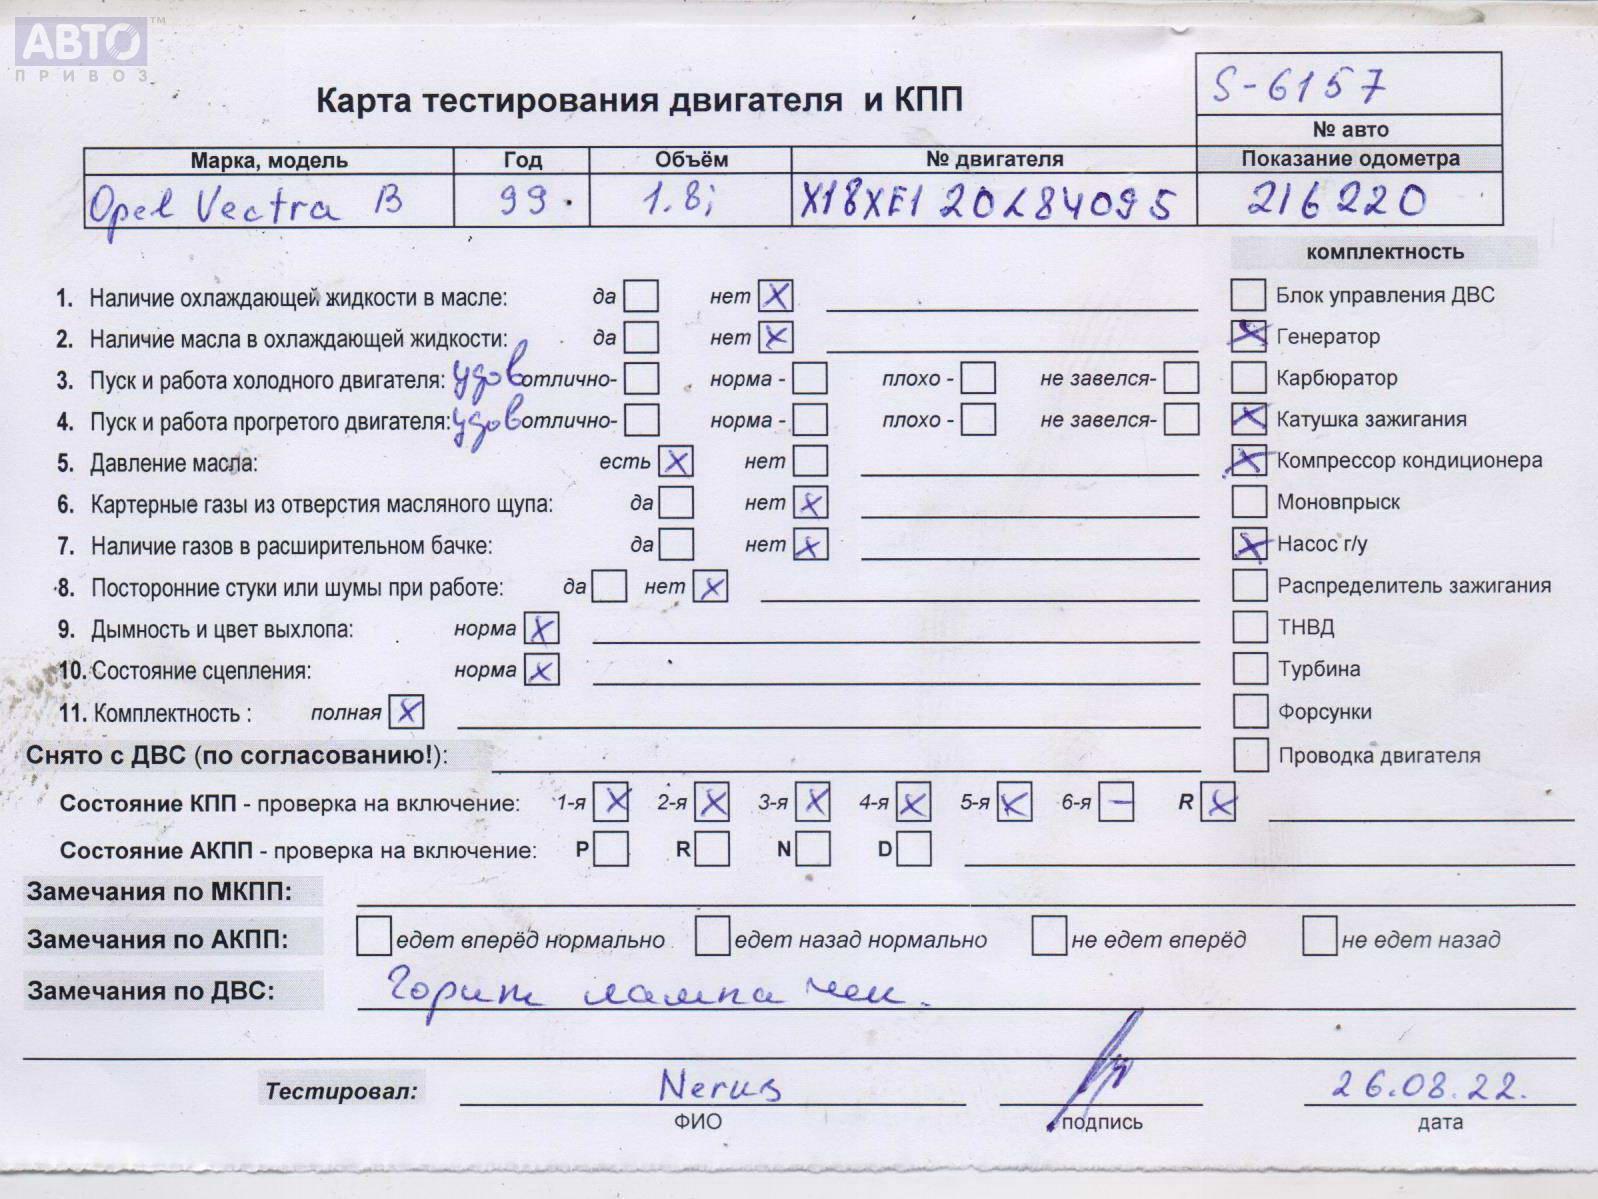 АВТО™
ПРИВОЗ
S-6157
Карта тестирования двигателя и КПП
№ авто
Марка, модель Год Объём № двигателя Показание одометра
Opel Vectra B 99. 1.8i X18XE1 20L84095 216220
комплектность
1. Наличие охлаждающей жидкости в масле: да нет X Блок управления ДВС
2. Наличие масла в охлаждающей жидкости: да нет X X Генератор
3. Пуск и работа холодного двигателя: удов отлично- норма - плохо - не завелся- Карбюратор
4. Пуск и работа прогретого двигателя: удов отлично- норма - плохо - не завелся- X Катушка зажигания
5. Давление масла: есть X нет X Компрессор кондиционера
6. Картерные газы из отверстия масляного щупа: да нет X Моновпрыск
7. Наличие газов в расширительном бачке: да нет X X Насос г/у
8. Посторонние стуки или шумы при работе: да нет X Распределитель зажигания
9. Дымность и цвет выхлопа: норма X ТНВД
10. Состояние сцепления: норма X Турбина
11. Комплектность : полная X Форсунки
Снято с ДВС (по согласованию!): Проводка двигателя
Состояние КПП - проверка на включение: 1-я X 2-я X 3-я X 4-я X 5-я X 6-я – R X
Состояние АКПП - проверка на включение: P R N D
Замечания по МКПП:
Замечания по АКПП: едет вперёд нормально едет назад нормально не едет вперёд не едет назад
Замечания по ДВС: Горит лампа чек.
Тестировал: 26.08.22.
ФИО подпись дата